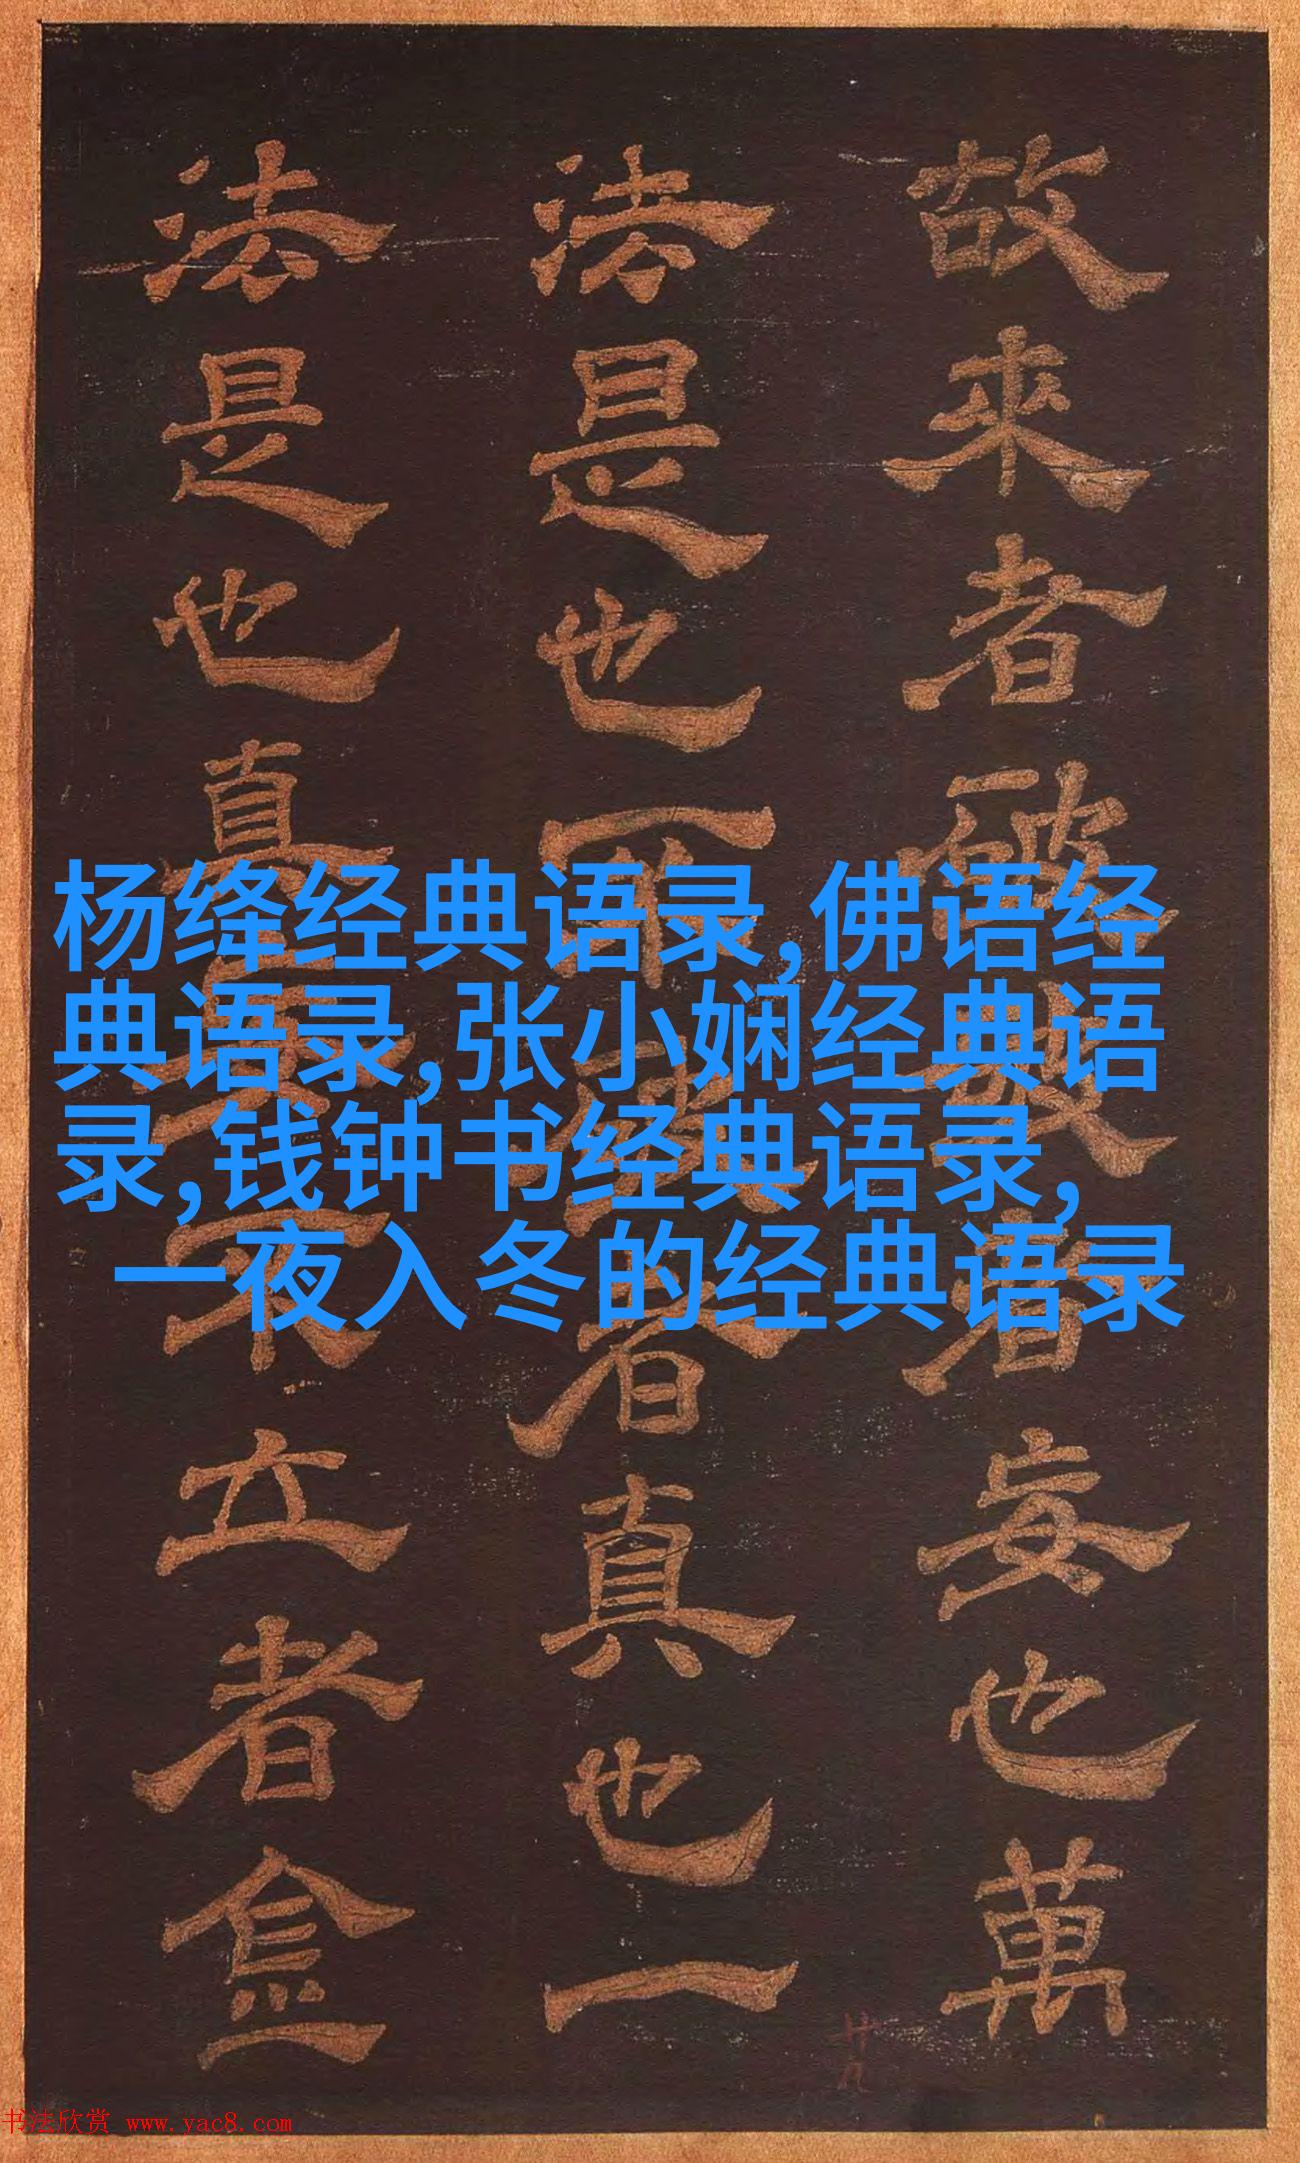 故來者
者妄也萬
法是也不
者真也一
法是也真
不立者
杨绛经典语录,佛语经
典语录,张小娴经典语
录,钱钟书经典语录,
一夜入冬的经典语录
书法欣赏 www.yac8.com